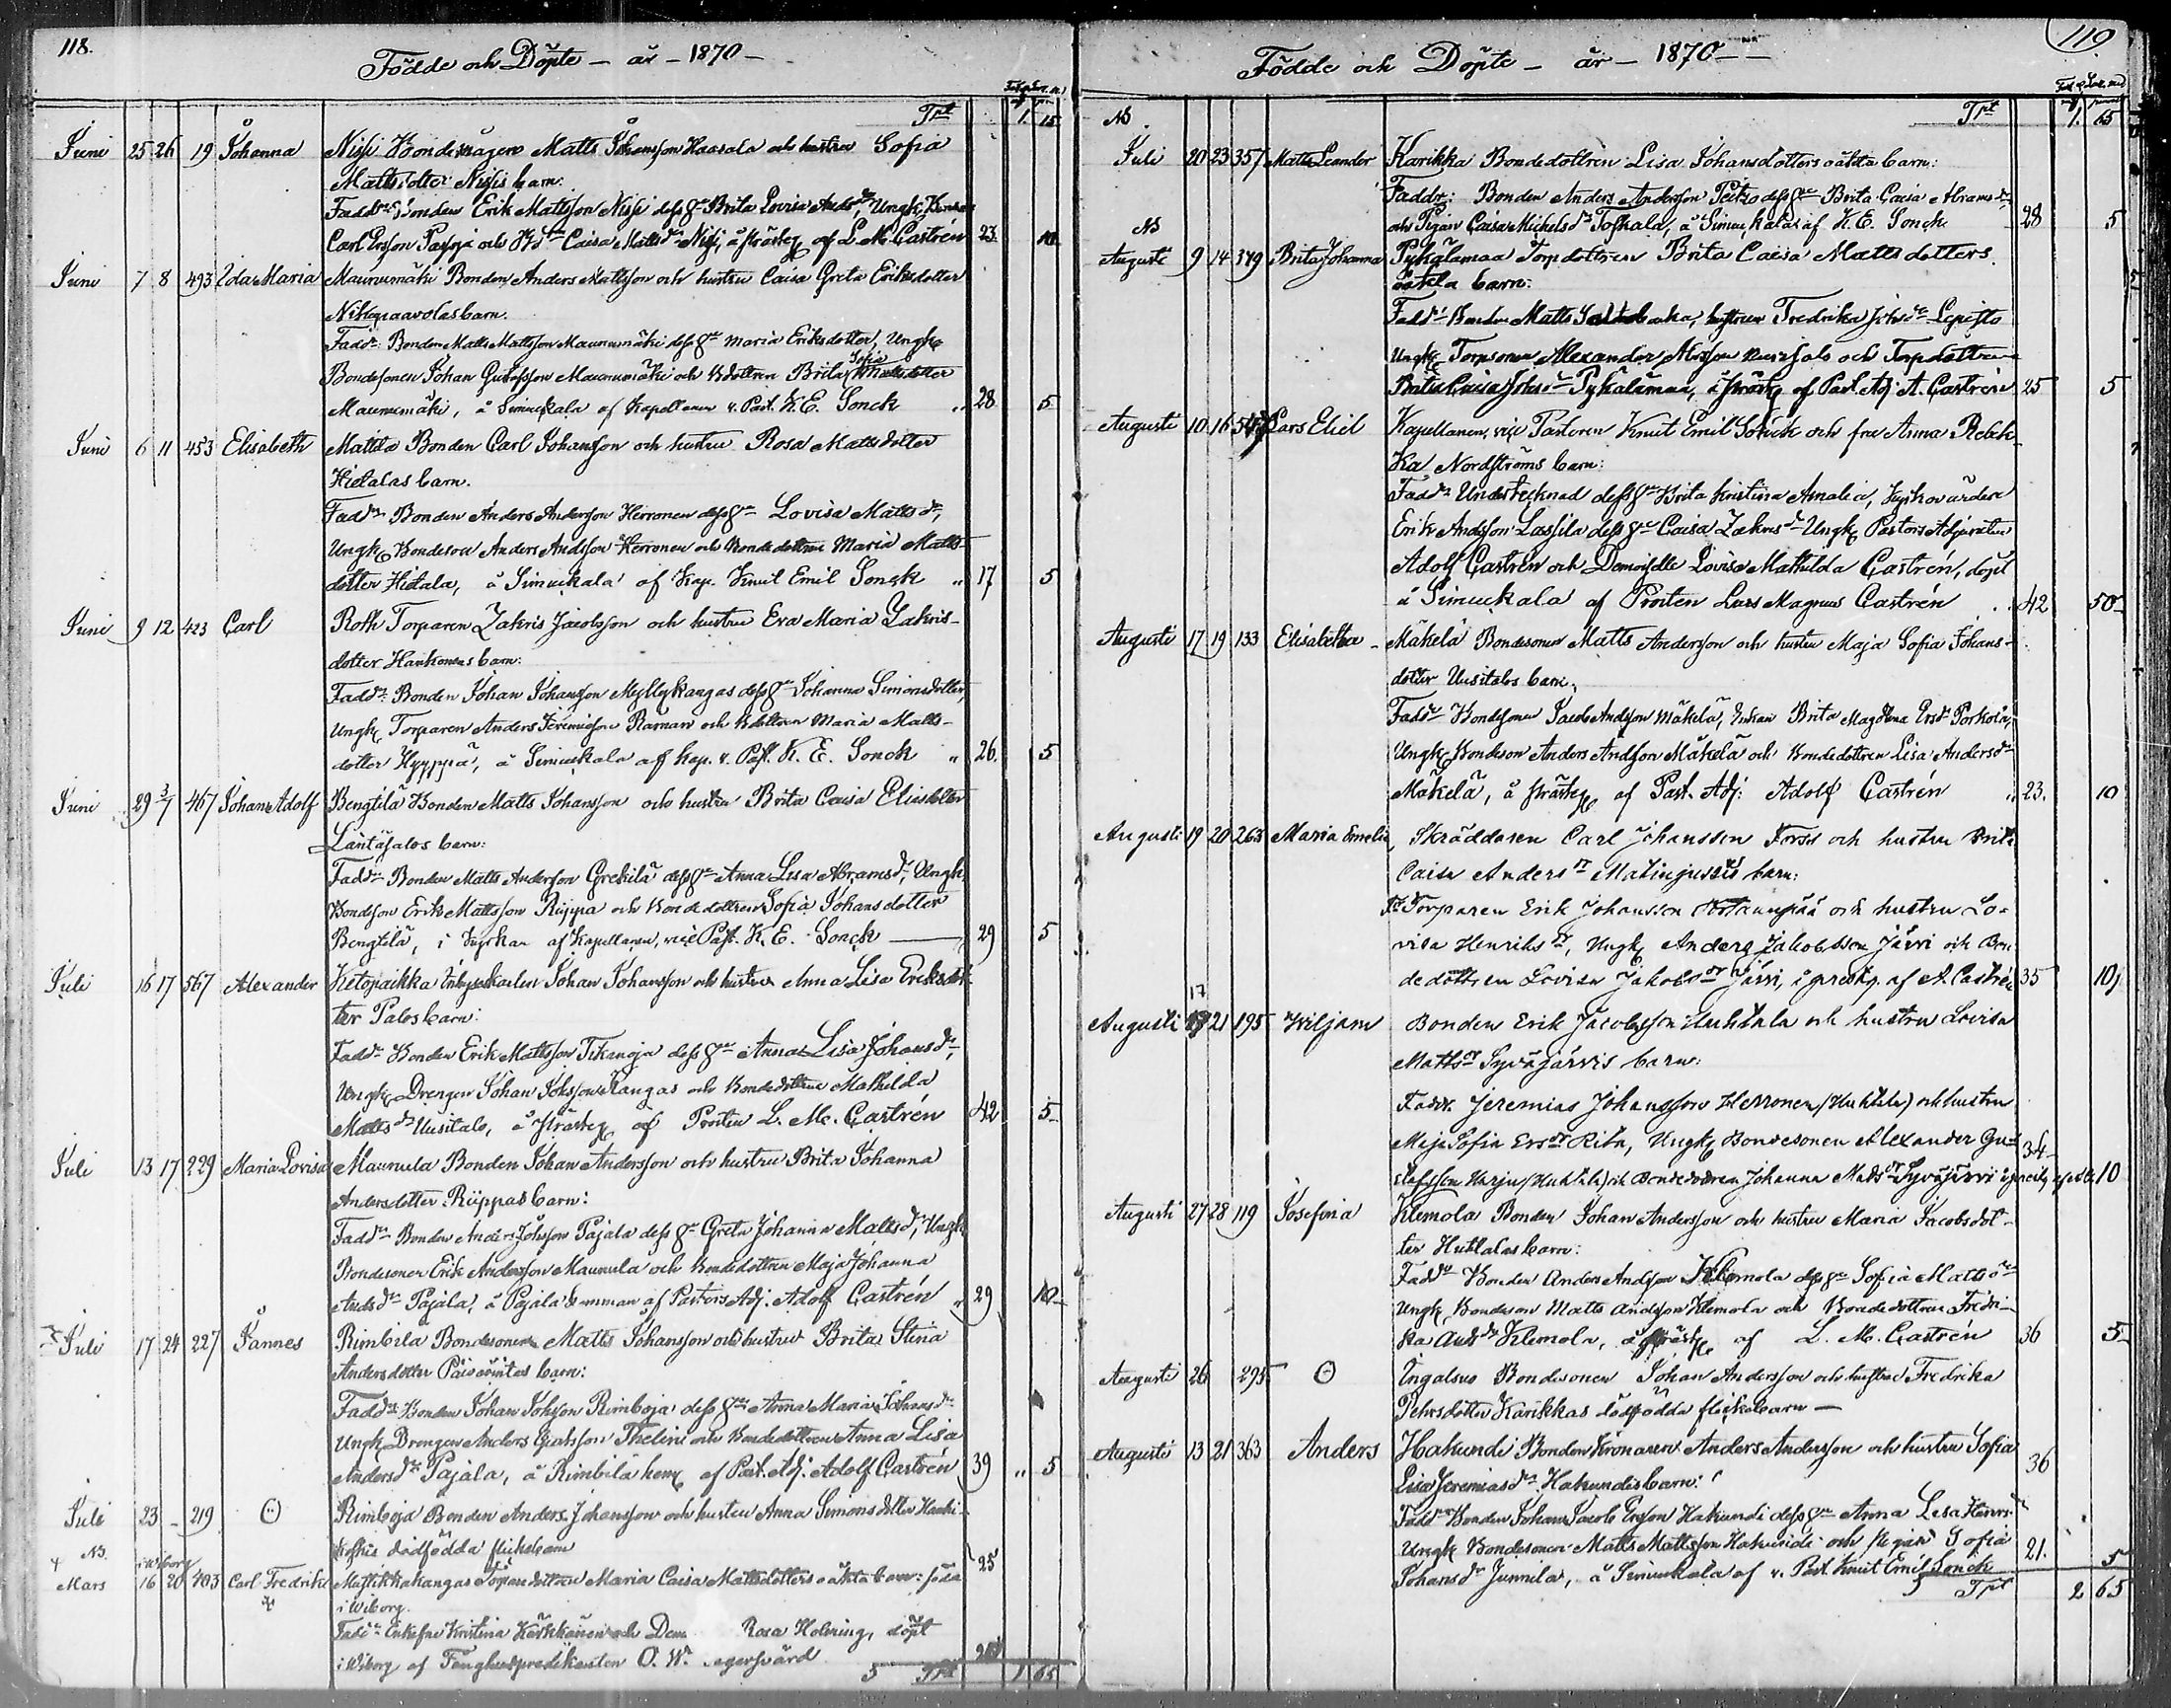 118.
Födde och Döpte – år – 1870 –
Tpt 1. 15
Juni 25 26 19 Johanna Nissi Bondemågen Matts Johansson Haasala och hustru Sofia
Mattsdotter Nissis barn:
Fadd: Bonden Erik Mattsson Nissi dess hu Brita Lovisa Andsdr, Ungk,
Carl Ersson och Caisa Mattsdr Nissi, å prästg af L. M. Castrén 23 10
Juni 7 8 493 Ida Maria Maunumäki Bonden Anders Mattsson och hustru Caisa Greta Eriksdotter
barn.
Fadd: Bonden Matts Mattsson Maunumäki dess hu Maria Eriksdotter, Ungk
Bondesonen Johan Gustafsson Maunumäki och Bdottren Brita Sofia Mattsdotter
Maunumäki, å Simuckala af Kapellanen v. Past. K. E. Sonck 28 5
Juni 6 11 453 Elisabeth Mattila Bonden Carl Johansson och hustru Rosa Mattsdotter
Hietalas barn.
Fadd: Bonden Anders Andersson Herronen dess hu Lovisa Mattsdr,
Ungk Bondeson Anders Andsson Herronen och Bondedottren Maria Matts-
dotter Hietala, å Simuckala af Kap. Knut Emil Sonck 17 5
Juni 9 12 423 Carl Roth Torparen Zakris Jacobsson och hustru Eva Maria Zakris-
dotter Hankonens barn:
Fadd: Bonden Johan Johansson Myllykangas dess hu Johanna Simonsdotter,
Ungk, Torparen Anders Jeremiasson och Bdottren Maria Matts-
dotter Hyyppä, å Simuckala af Kap. v. Past. K. E. Sonck 26. 5
Juni 29 3/7 467 Johan Adolf Bengtilä Bonden Matts Johansson och hustru Brita Caisa Eliasdotter
Läntäsalos barn:
Fadd: Bonden Matts Andersson Grekilä dess hu Anna Lisa Abramsdr, Ungk,
Bondson Erik Mattsson Riippa och Bondedottren Sofia Johansdotter
Bengtilä, i kyrkan af Kapellanen, vice Past. K. E. Sonck 29 5
Juli 16 17 567 Alexander Ketopaikka Inhyseskarlen Johan Johansson och hustru Anna Lisa Eriksdot-
ter Palos barn:
Fadd: Bonden Erik Mattsson Tikanoja dess hu Anna Lisa Johansdr,
Ungk, Drengen Johan Johsson Kangas och Bondedottren Mathilda
Mattsdr Uusitalo, å prästg af Prosten L. M. Castrén 42 5
Juli 13 17 229 Maria Lovisa Maunula Bonden Johan Andersson och hustru Brita Johanna
Andersdotter Riippas barn:
Fadd: Bonden Anders Johsson Pajala dess hu Greta Johanna Mattsdr, Ungk,
Bondesonen Erik Andersson Maunula och Bondedottren Maja Johanna
Andsdr Pajala, å Pajala hemman af Pastors Adj. Adolf Castrén 29 10
Juli 17 24 227 Jannes Rimbila Bondesonen Matts Johansson och hustru Brita Stina
Andersdotter barn:
Fadd: Bonden Johan Johsson Rimboja dess hu Anna Maria Johansdr
Ungk Drengen Anders Thelin och Bondedottren Anna Lisa
Andersdr Pajala, å Rimbilä hem af Past. Adj. Adolf Castrén 39 5
Juli 23 – 219 Θ Rimboja Bonden Anders Johansson och hustru Anna Simonsdotter
dödfödda flickebarn 25
NB. i Wiborg
Mars 16 20 403 Carl Fredrik Torpardottren Maria Caisa Mattsdotters oäkta barn: föda
i Wiborg.
Fadd: Enkefru Kristina och Dem Rosa Holming, döpt
i Wiborg af Fengelsepredikanten O. W.
5 Tpt 1 65
119
Födde och Döpte – år – 1870 –
NB. Tpt 1. 65
Juli 20 23 357 Matts Leander Karikka Bondedottren Lisa Johansdotters oäkta barn:
Faddr: Bonden Anders Andersson Peitso dess hu Brita Caisa Abramsdr
och Pigan Caisa Michelsdr Tofkala, å Simuckala af K. E. Sonck 28 5
NB
Augusti 9 14 349 Brita Johanna Pykälämaa Torpdottren Brita Caisa Mattsdotters
oäkta barn:
Fadd: Bonden Matts hustrun Fredrika Johsdr Lepistö
Ungk Torpsonen Alexander och Torpdottren
Brita Caisa Johsdr Pykälämaa, å prästg af Past. Adj. A. Castrén 25 5
Augusti 10 16 Lars Eliel Kapellanen, vice Pastoren Knut Emil Sonck och fru Anna Rebek-
ka Nordströms barn:
Fadd: Undertecknad dess hu Brita Kristina Amalia, Kyrkovärden
Erik Andsson Lassila dess hu Caisa Zakrisdr Ungk, Pastors Adjuncten
Adolf Castrén och Demoiselle Lovisa Mathilda Castrén, döpt
å Simuckala af Prosten Lars Magnus Castrén 42 50
Augusti 17 19 133 Elisabetha Mäkelä Bondesonen Matts Andersson och hustru Maja Sofia Johans-
dotter Uusitalos barn,
Fadd: Bondesonen Jacob Andsson Mäkelä, Enkan Brita Magdlena Ersdr Porkola,
Ungk, Bondeson Anders Andsson Mäkelä och Bondedottren Lisa Andersdr
Mäkelä, å prästg af Past. Adj: Adolf Castrén 23. 10
Augusti 19 20 263 Maria Emelia, Skräddaren Carl Johansson Forss och hustru Brita
Caisa Andersdr barn:
Fd: Torparen Erik Johansson och hustru Lo-
visa Henriksdr, Ungk Anders Jakobsson Järvi och Bon-
dedottren Lovisa Jakobsdr Järvi, i prestg. af A. Castrén 35 10
Augusti 17 21 195 Wiljam Bonden Erik Jacobsson Huhtala och hustru Lovisa
Mattsdr Syväjärvis barn:
Faddr. Jeremias Johansson Herronen (Huhtala) och hustru
Maja Sofia Ersdr Rita, Ungk, Bondesonen Alexander Gu-
stafsson Harju (Huhtala) och Bondedottren Johanna Mattsdr Syväjärvi i prestg. 34 10
Augusti 27 28 119 Josefina Klemola Bonden Johan Andersson och hustru Maria Jacobsdot-
ter Huhtalas barn:
Fadd: Bonden Anders Andsson Klemola dess hu Sofia Mattsdr
Ungk, Bondeson Matts Andsson Klemola och Bondedottren Fredri-
ka Andsdr Klemola, å prästg af L. M. Castrén 36 5
Augusti 26 295 Θ Ingalsuo Bondesonen Johan Andersson och hustru Fredrika
Pehrsdotter Karikkas dödfödda flickebarn –
Augusti 13 21 363 Anders Hakundi Bonden Kronaren Anders Andersson och hustru Sofia 36
Lisa Jeremiasdr Hakundis barn:
Fadd: Bonden Johan Jacob Ersson Hakundi dess hu Anna Lisa
Ungk Bondesonen Matts Mattsson Hakundi och pigan Sofia 21.
Johansdr Junnila, å Simuckala af v. Past. Knut Emil Sonck 5
Tpt 2 65